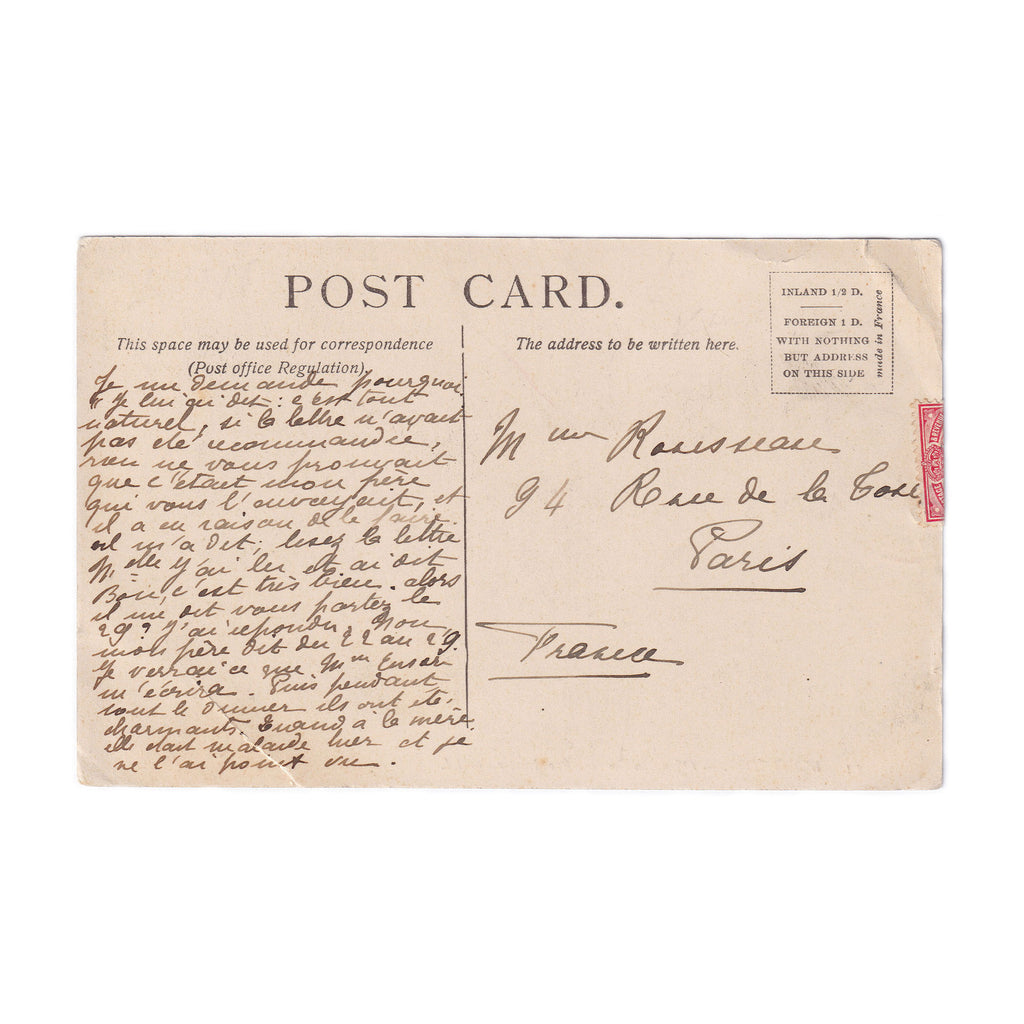 POST CARD.
This space may be used for correspondence
(Post office Regulation).
The address to be written here.
INLAND 1/2 D.
FOREIGN 1 D.
WITH NOTHING
BUT ADDRESS
ON THIS SIDE
made in France
Je me demande pourquoi
je lui ai dit : c'est tout
naturel, si la lettre n'avait
pas été recommandée,
rien ne vous prouvait
que c'était mon père
qui vous l'envoyait, et
il a eu raison de le faire.
il m'a dit, lisez la lettre
j'ai lu et ai dit
Bon, c'est très bien. alors
il me dit vous partez le
29? j'ai répondu, Non
mon père dit du 22 au 29.
Je verrai ce que Mme
m'écrira. Puis pendant
tout le dinner ils ont été
charmants. Quand à la mère
elle était malade hier et je
ne l'ai point vu.
Mme Rousseau
94 Rue de la
Paris
France